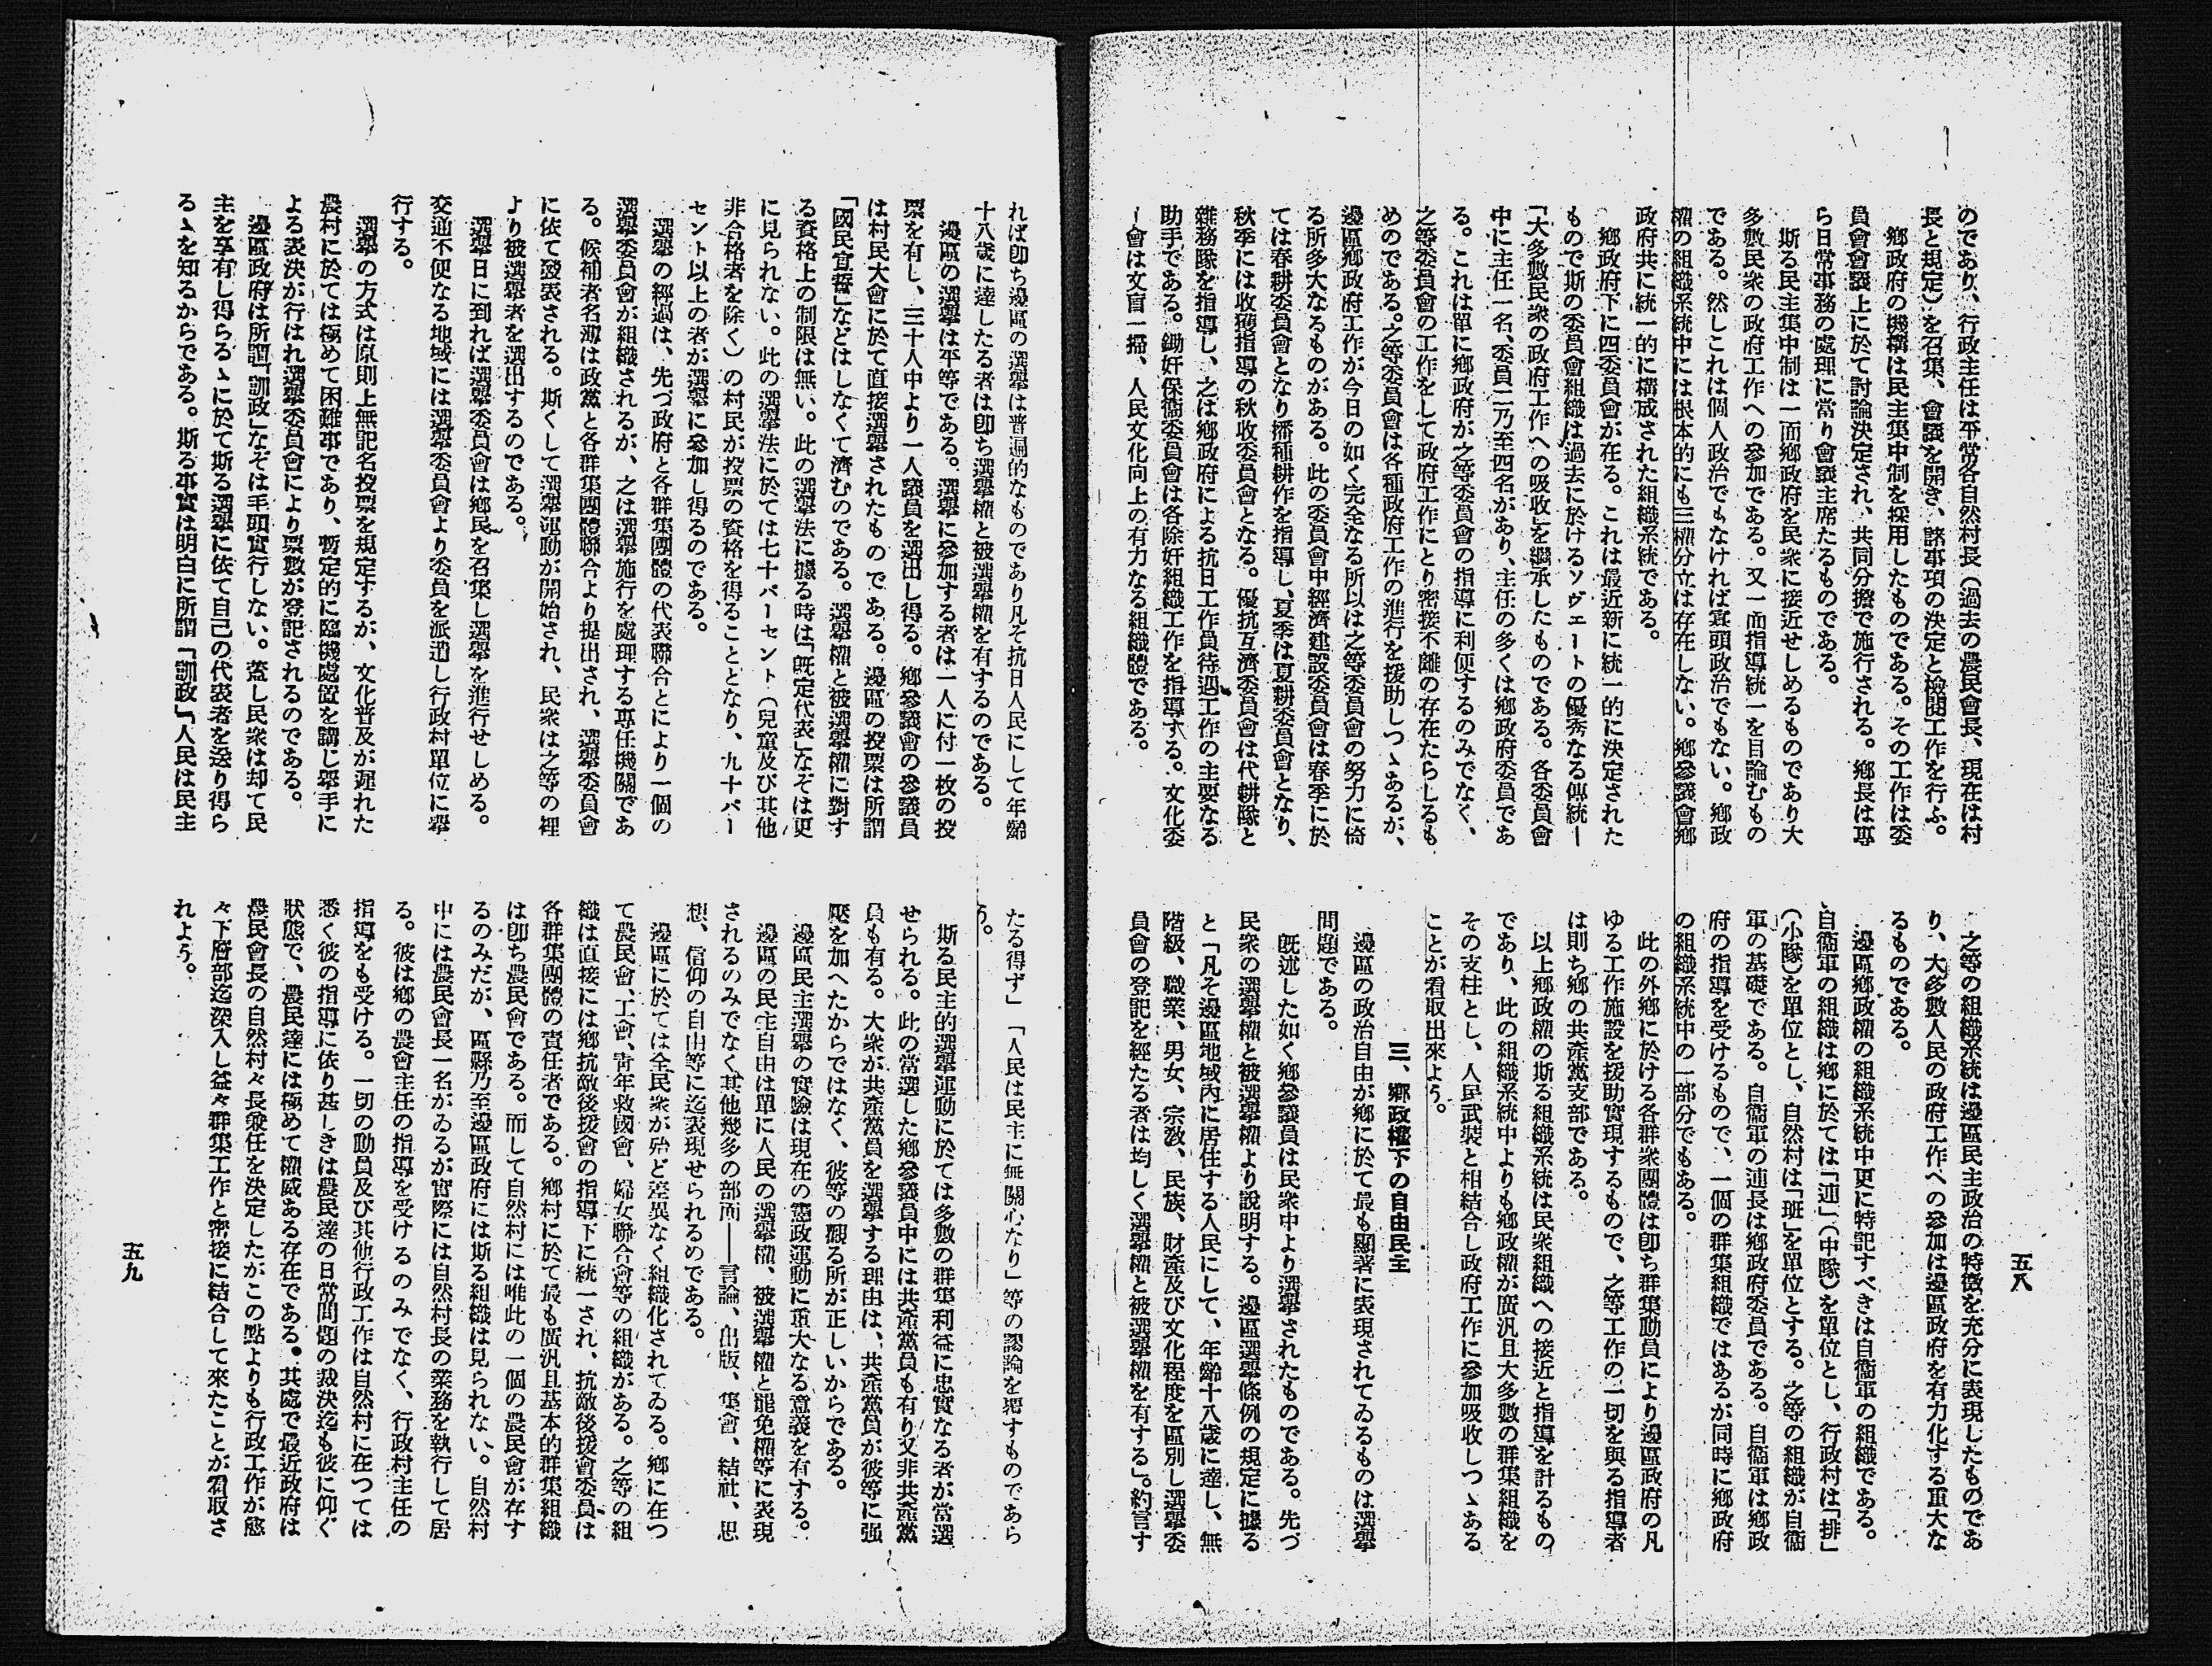 五八
のであり、行政主任は平常各自然村長（過去の農民會長、現在は村
長と規定）を召集、會議を開き、諸事項の決定と檢閲工作を行ふ。
鄕政府の機構は民主集中制を採用したものである。その工作は委
員會會議上に於て討論決定され、共同分擔で施行される。鄕長は專
ら日常事務の處理に當り會議主席たるものである。
斯る民主集中制は一面鄕政府を民衆に接近せしめるものであり大
多數民衆の政府工作への參加である。又一面指導統一を目論むもの
である。然しこれは個人政治でもなければ寡頭政治でもない。鄕政
權の組織系統中には根本的にも三權分立は存在しない。鄕參議會鄕
政府共に統一的に構成された組織系統である。
鄕政府下に四委員會が在る。これは最近新に統一的に決定された
もので斯の委員會組織は過去に於けるソヴエートの優秀なる傳統ー
「大多數民衆の政府工作への吸收」を繼承したものである。各委員會
中に主任一名、委員二乃至四名があり、主任の多くは鄕政府委員であ
る。これは單に鄕政府が之等委員會の指導に利便するのみでなく、
之等委員會の工作をして政府工作にとり密接不離の存在たらしるも
めのである。之等委員會は各種政府工作の進行を援助しつゝあるが、
邊區鄕政府工作が今日の如く完全なる所以は之等委員會の努力に倚
る所多大なるものがある。此の委員會中經濟建設委員會は春季に於
ては春耕委員會となり播種耕作を指導し、夏季は夏耕委員會となり、
秋季には收穫指導の秋收委員會となる。優抗互濟委員會は代耕隊と
雜務隊を指導し、之は鄕政府による抗日工作員待遇工作の主要なる
助手である。鋤奸保衞委員會は各除奸組織工作を指導する。文化委
ー會は文盲一掃、人民文化向上の有力なる組織體である。
之等の組織系統は邊區民主政治の特徵を充分に表現したものであ
り、大多數人民の政府工作への參加は邊區政府を有力化する重大な
るものである。
邊區鄕政權の組織系統中更に特記すべきは自衞軍の組織である。
自衞軍の組織は鄕に於ては「連」（中隊）を單位とし、行政村は「排」
（小隊）を單位とし、自然村は「班」を單位とする。之等の組織が自衞
軍の基礎である。自衞軍の連長は鄕政府委員である。自衞軍は鄕政
府の指導を受けるもので、一個の群集組織ではあるが同時に鄕政府
の組織系統中の一部分でもある。
此の外鄕に於ける各群衆團體は卽ち群集動員により邊區政府の凡
ゆる工作施設を援助實現するもので、之等工作の一切を與る指導者
は則ち鄕の共產黨支部である。
以上鄕政權の斯る組織系統は民衆組織への接近と指導を計るもの
であり、此の組織系統中よりも鄕政權が廣汎且大多數の群集組織を
その支柱とし、人民武裝と相結合し政府工作に參加吸收しつゝある
ことが看取出來よう。
三、鄕政權下の自由民主
邊區の政治自由が鄕に於て最も顯著に表現されてゐるものは選擧
問題である。
旣述した如く鄕參議員は民衆中より選擧されたものである。先づ
民衆の選擧權と被選擧權より說明する。邊區選擧條例の規定に據る
と「凡そ邊區地域內に居住する人民にして、年齡十八歲に達し、無
階級、職業、男女、宗敎、民族、財產及び文化程度を區別し選擧委
員會の登記を經たる者は均しく選擧權と被選擧權を有する」。約言す
れば卽ち邊區の選擧は普遍的なものであり凡そ抗日人民にして年齡
十八歲に達したる者は卽ち選擧權と被選擧權を有するのである。
邊區の選擧は平等である。選擧に參加する者は一人に付一枚の投
票を有し、三十人中より一人議員を選出し得る。鄕參議會の參議員
は村民大會に於て直接選擧されたものである。邊區の投票は所謂
「國民宣誓」などはしなくて濟むのである。選擧權と被選擧權に對す
る資格上の制限は無い。此の選擧法に據る時は「旣定代表」なぞは更
に見られない。此の選擧法に於ては七十パーセント（兒童及び其他
非合格者を除く）の村民が投票の資格を得ることとなり、九十パー
セント以上の者が選擧に參加し得るのである。
選擧の經過は、先づ政府と各群集團體の代表聯合とにより一個の
選擧委員會が組織されるが、之は選擧施行を處理する專任機關であ
る。候補者名簿は政黨と各群集團體聯合より提出され、選擧委員會
に依て發表される。斯くして選擧運動が開始され、民衆は之等の裡
より被選擧者を選出するのである。
選擧日に到れば選擧委員會は鄕民を召集し選擧を進行せしめる。
交通不便なる地域には選擧委員會より委員を派遣し行政村單位に擧
行する。
選擧の方式は原則上無記名投票を規定するが、文化普及が遲れた
農村に於ては極めて困難事であり、暫定的に臨機處置を講じ擧手に
よる表決が行はれ選擧委員會により票數が登記されるのである。
邊區政府は所謂「訓政」なぞは毛頭實行しない。蓋し民衆は却て民
主を享有し得らるゝに於て斯る選擧に依て自己の代表者を送り得ら
るゝを知るからである。斯る事實は明白に所謂「訓政」「人民は民主
たる得ず」「人民は民主に無關心なり」等の謬論を覆すものであら
う。
斯る民主的選擧運動に於ては多數の群集利益に忠實なる者が當選
せられる。此の當選した鄕參議員中には共產黨員も有り又非共產黨
員も有る。大衆が共產黨員を選擧する理由は、共產黨員が彼等に强
壓を加へたからではなく、彼等の觀る所が正しいからである。
邊區民主選擧の實驗は現在の憲政運動に重大なる意義を有する。
邊區の民主自由は單に人民の選擧權、被選擧權と罷免權等に表現
されるのみでなく其他幾多の部面――言論、出版、集會、結社、思
想、信仰の自由等に迄表現せられるめである。
邊區に於ては全民衆が殆ど差異なく組織化されてゐる。鄕に在つ
て農民會、工會、靑年救國會、婦女聯合會等の組織がある。之等の組
織は直接には鄕抗敵後援會の指導下に統一され、抗敵後援會委員は
各群集團體の責任者である。鄕村に於て最も廣汎且基本的群集組織
は卽ち農民會である。而して自然村には唯此の一個の農民會が存す
るのみだが、區縣乃至邊區政府には斯る組織は見られない。自然村
中には農民會長一名がゐるが實際には自然村長の業務を執行して居
る。彼は鄕の農會主任の指導を受けるのみでなく、行政村主任の
指導をも受ける。一切の動員及び其他行政工作は自然村に在つては
悉く彼の指導に依り甚しきは農民達の日常問題の裁決迄も彼に仰ぐ
狀態で、農民達には極めて權威ある存在である。其處で最近政府は
農民會長の自然村々長兼任を決定したがこの點よりも行政工作が愈
々下層部迄深入し益々群集工作と密接に結合して來たことが看取さ
れよう。
五九